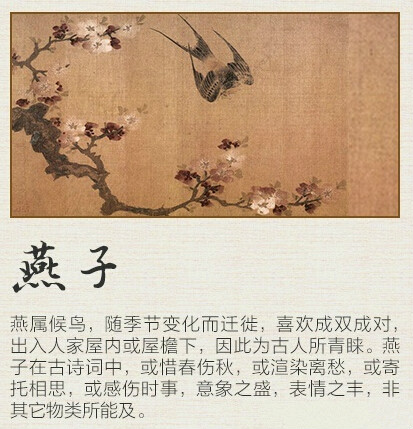 燕子
燕属候鸟，随季节变化而迁徙，喜欢成双成对，
出入人家屋内或屋檐下，因此为古人所青睐。燕
子在古诗词中，或惜春伤秋，或渲染离愁，或寄
托相思，或感伤时事，意象之盛，表情之丰，非
其它物类所能及。